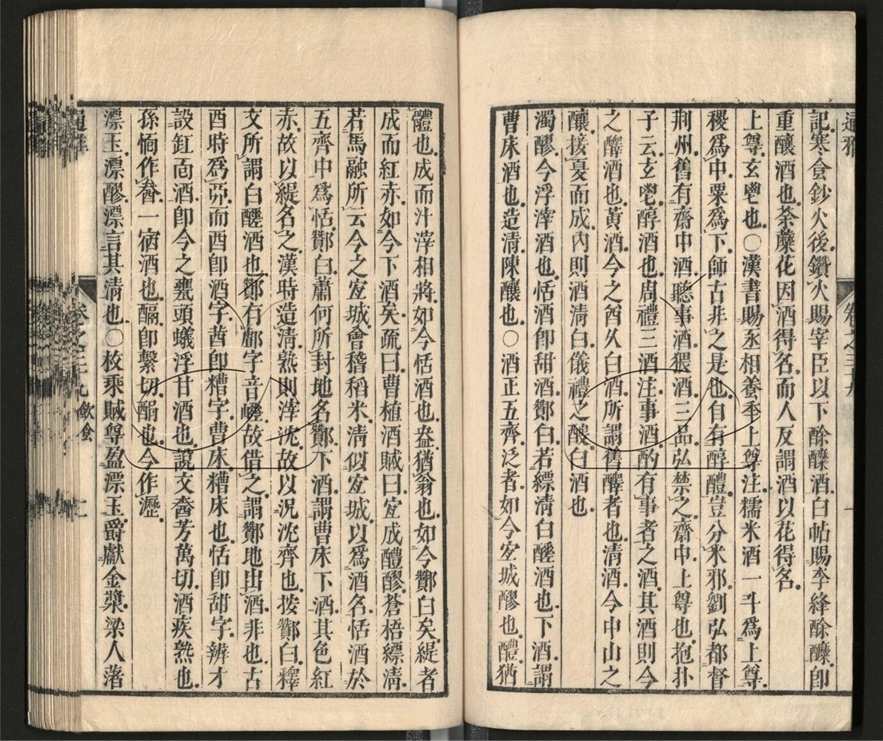 記寒食鈔火後鑽火賜宰臣以下酴醿酒白帖賜李絳酴醿即
重釀酒也荼蘼花因酒得名而人反謂酒以花得名
上尊玄鬯也○漢書賜丞相養牛上尊注糯米酒一斗爲上尊
稷爲中粟爲下師古非之是也自有醇醴豈分米邪劉弘都督
荆州舊有齋中酒聽事酒猥酒三品弘禁之齋中上尊也抱扑
子云玄鬯醇酒也周禮三酒注事酒酌有事者之酒其酒則今
之醳酒也黄酒今之酋久白酒所謂舊醳者也清酒今中山之
釀接夏而成內則酒清白儀禮之酸白酒也
濁醪今浮滓酒也恬酒即甜酒酇白若縹清白醝酒也下酒謂
曹床酒也造清陳釀也○酒正五齊泛者如今宜城醪也醴猶
體也成而汁滓相將如今恬酒也盎猶翁也如今酇白矣緹者
成而紅赤如今下酒矣疏曰曹植酒賦曰宜成醴醪蒼梧縹清
若馬融所云今之宜城會稽稻米清似宜城以爲酒名恬酒於
五齊中爲恬酇白蕭何所封地名酇下酒謂曹床下酒其色紅
赤故以緹名之漢時造清熟則滓沈故以況沈齊也按酇白釋
文所謂白醝酒也酇有酂字音嵯故借之謂酇地出酒非也古
酉時爲丣而酉即酒字莤即糟字曹床糟床也恬即甜字辨才
設缸面酒即今之甕頭蟻浮甘酒也說文酓芳萬切酒疾熟也
孫愐作畚一宿酒也酾即繫切醑也今作瀝
漂玉漂醪漂言其清也○枚乘賦尊盈漂玉爵獻金漿梁人藷
通雅
卷之三十九
通雅
卷之三十九
飲食